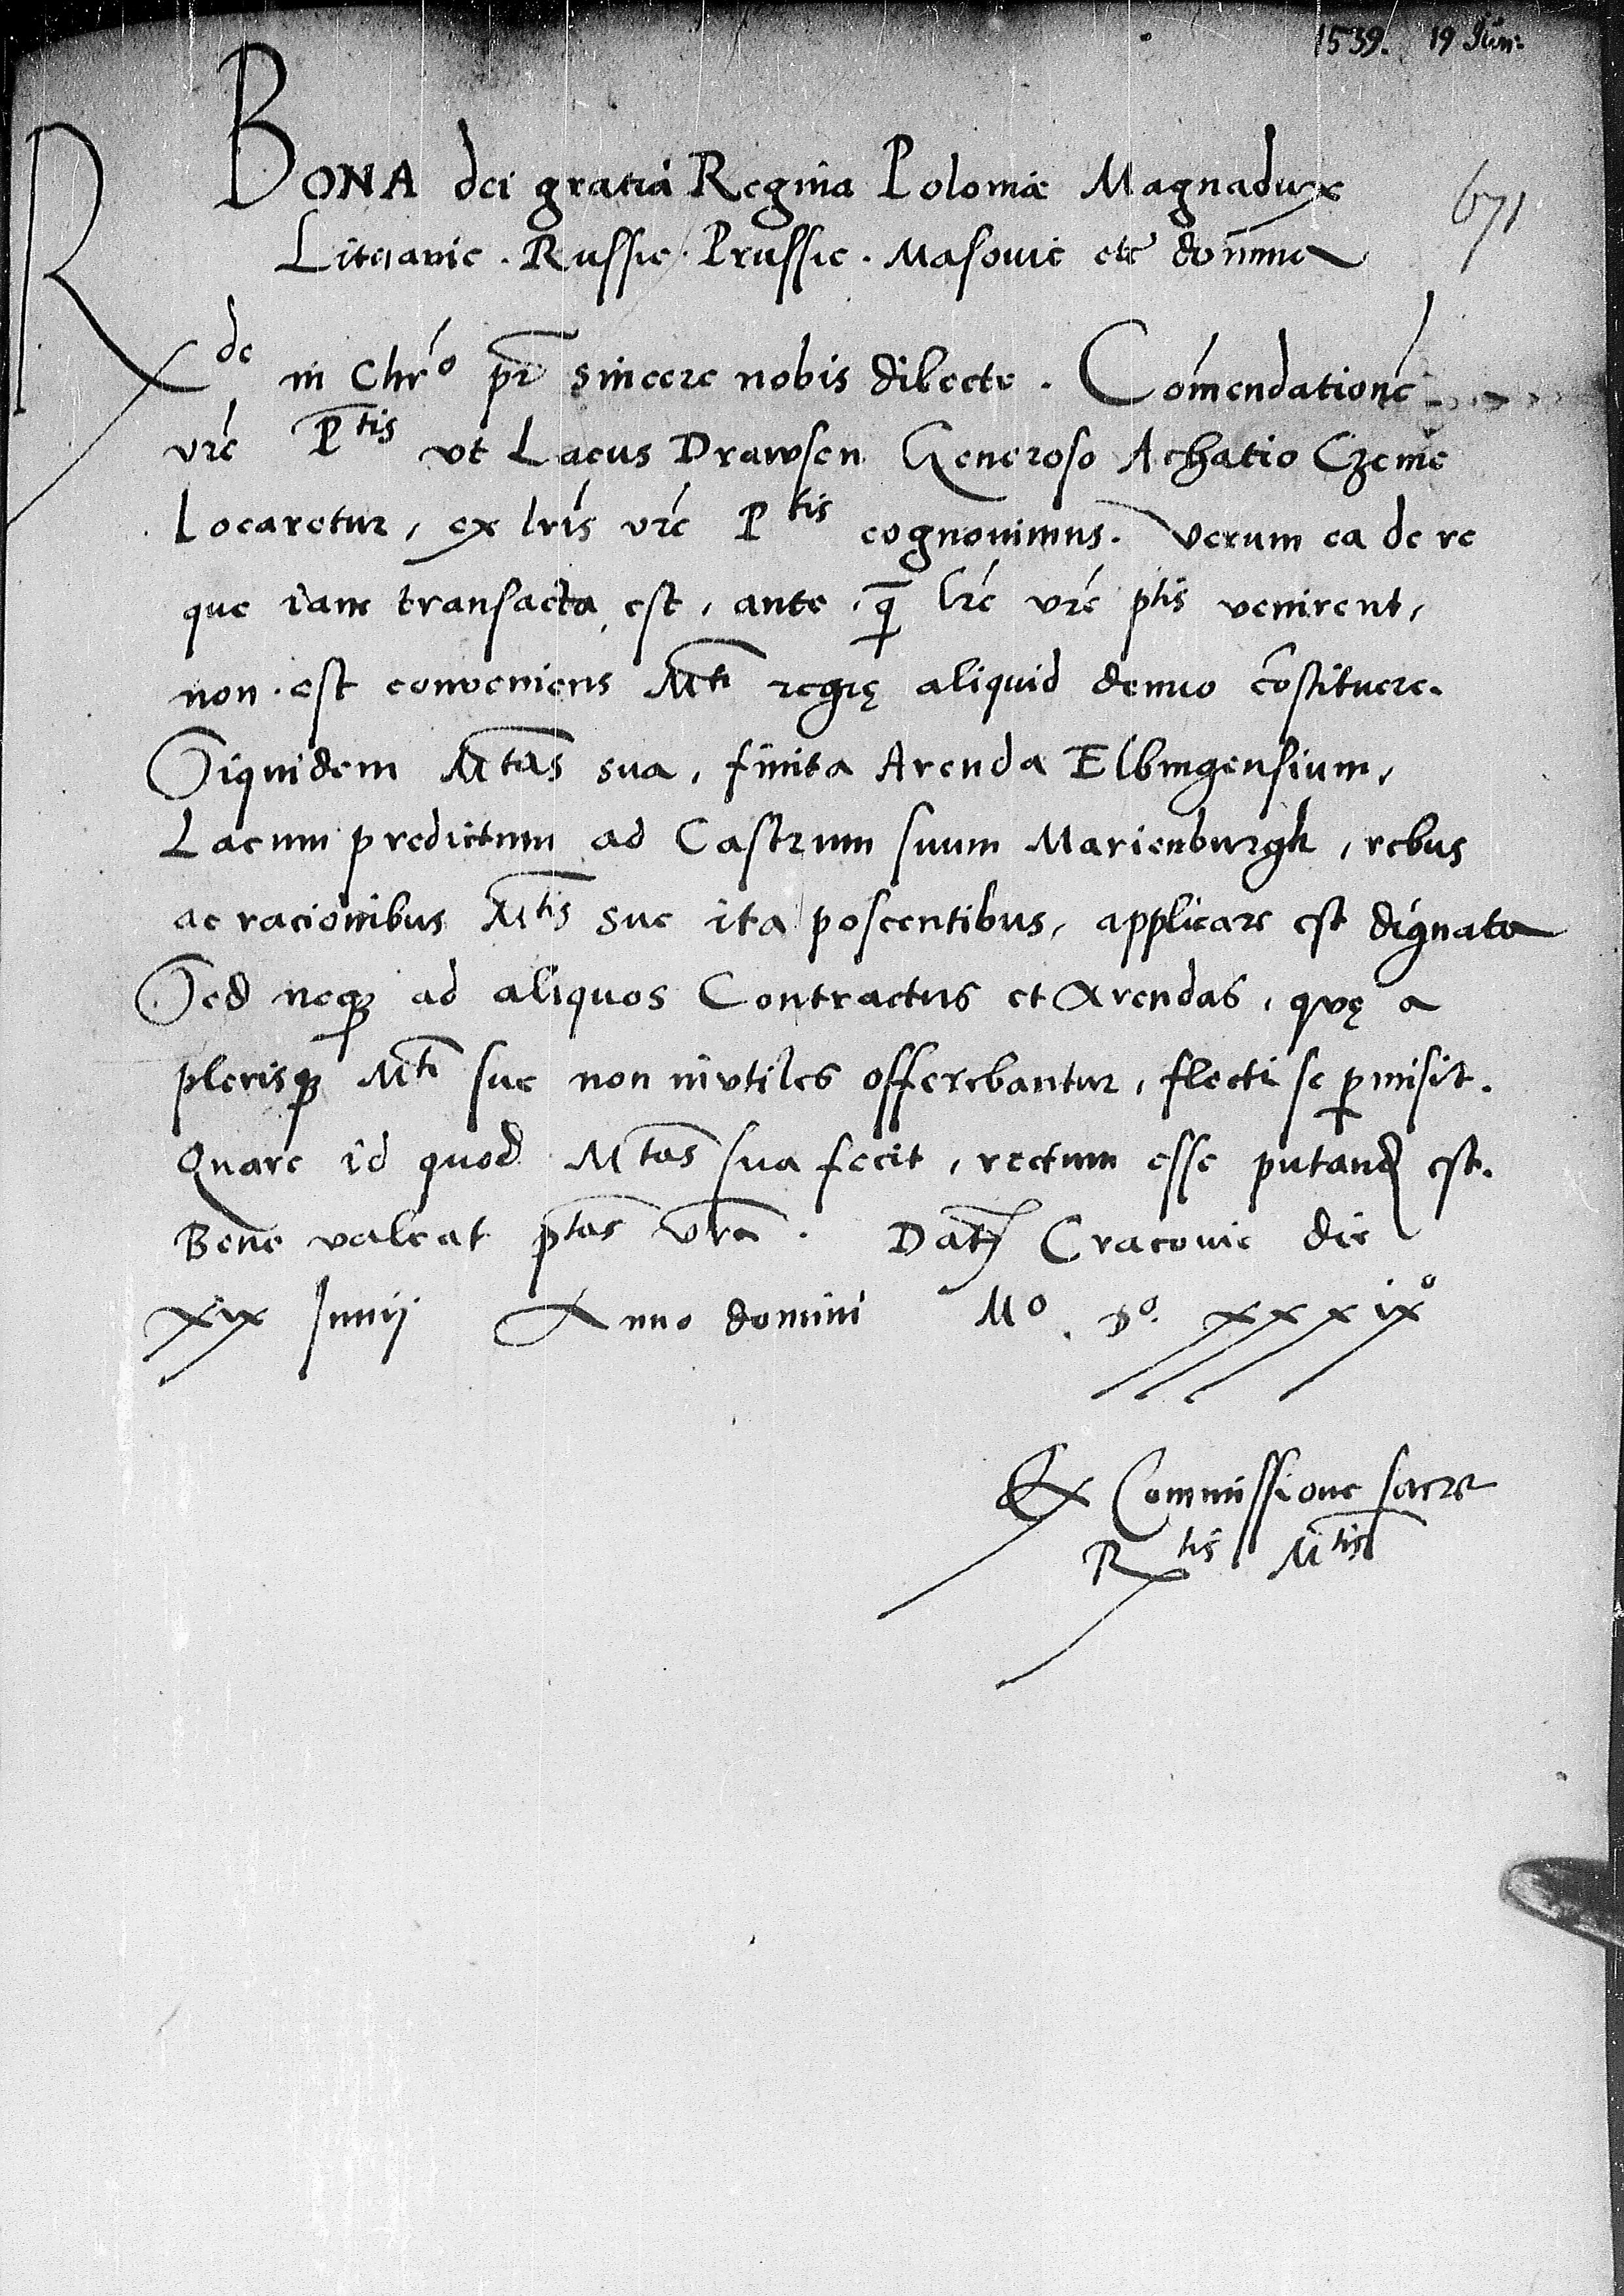 1539. 19 Jun:
671
BONA dei gratia Regina Poloniæ Magnadux
Lituanie . Russie . Prussie . Masouie etc domina
Rde in Chr̃o pr̃ sincere nobis dilecte . Com̃endationẽ
vr̃e Ptis vt Lacus Drawsen Generoso Achatio Czeme
Locaretur, ex lr̃is vr̃e Ptis cognouimus. Verum ea de re
que iam transacta est, ante, q̃ lr̃e vr̃e ptis venirent,
non est conveniens Mti regię aliquid denuo cõstituere.
Siquidem Mtas sua, finita Arenda Elbingensium,
Lacum predictum ad Castrum suum Marienburgk, rebus
ac racionibus Mtis sue ita poscentibus, applicare est dignata
Sed neqꝫ ad aliquos Contractus et Arendas, quę a
plerisqꝫ Mti sue non invtiles offerebantur, flecti se ꝑmisit.
Quare id quod Mtas sua fecit, rectum esse putand est.
Bene valeat ptas vr̃a. Datꝫ Cracouie die
xix Junij Anno domini Mo. Do. xxxixo
Ex Commissione sacre
Rtis Mtis